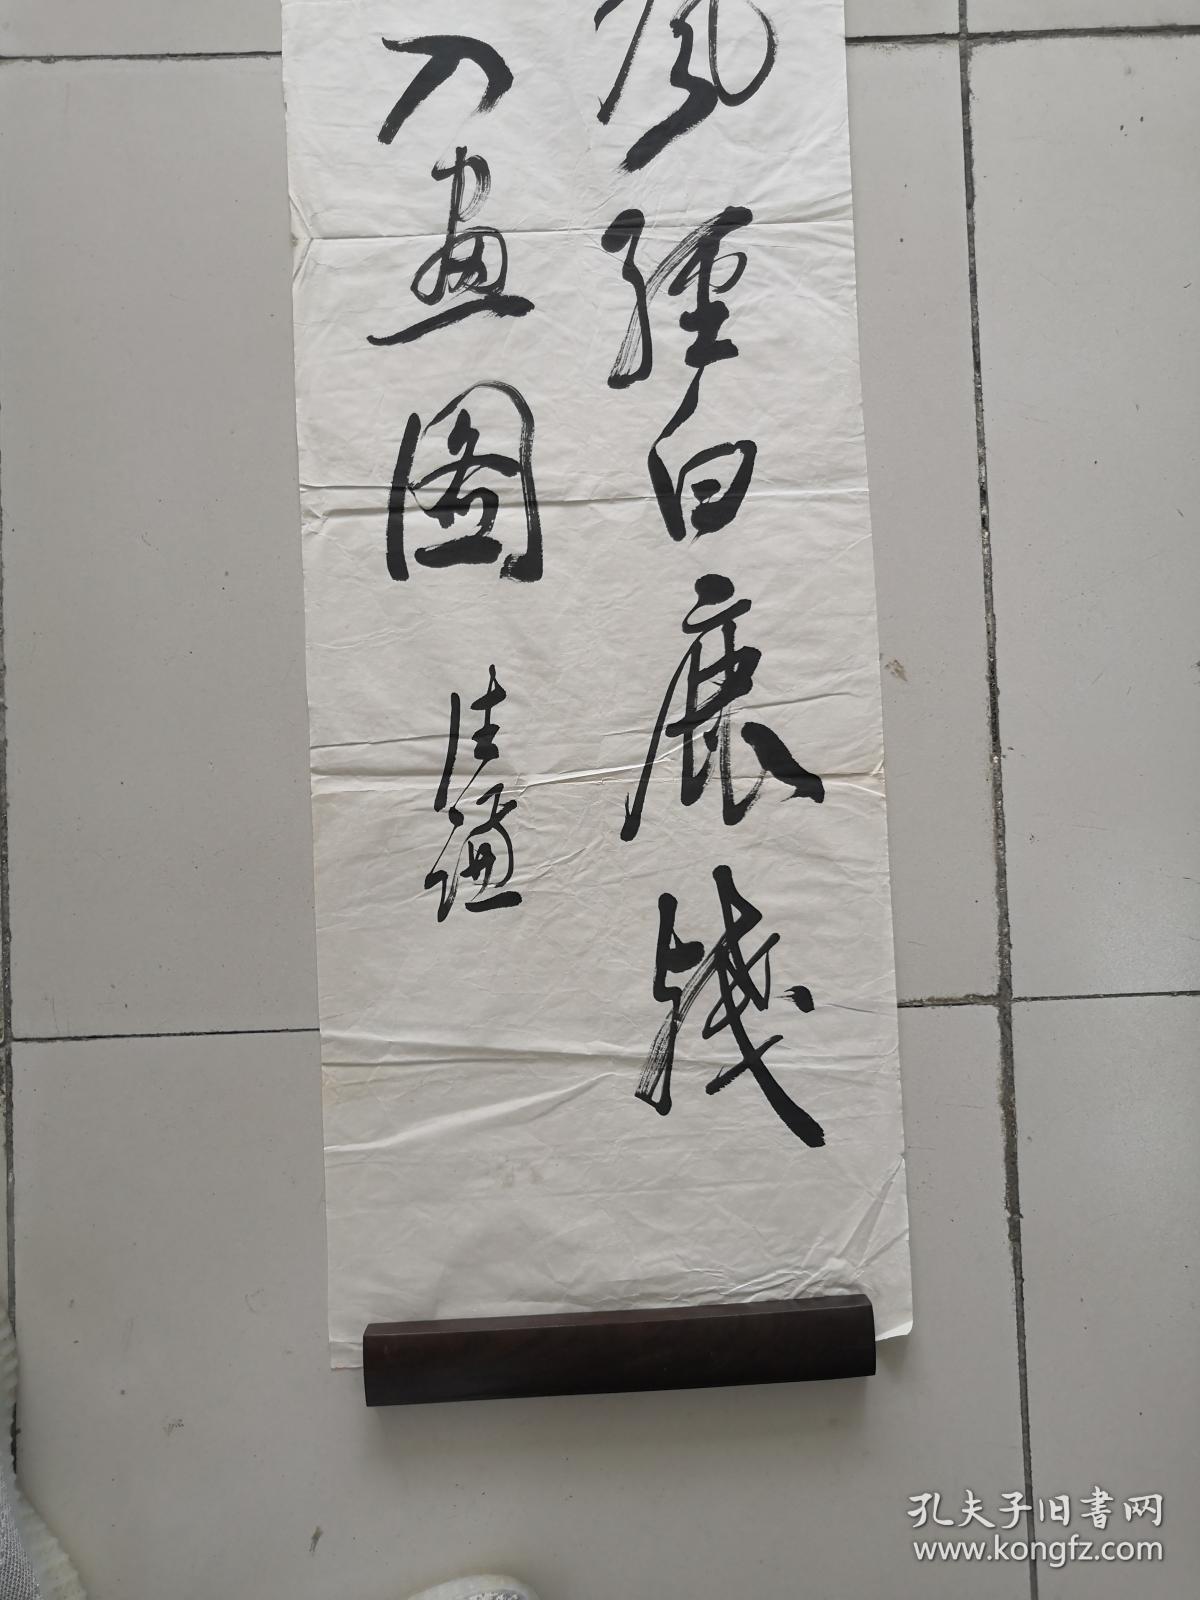 風缠白鹿栈
入画图
佳谦
孔夫子旧书网
www.kongfz.com